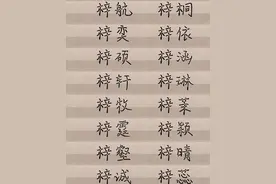 梓航 梓桐
梓奕 梓依
梓硕 梓涵
梓轩 梓琳
梓牧 梓茉
梓霆 梓颖
梓壑 梓晴
梓诚 梓蕊